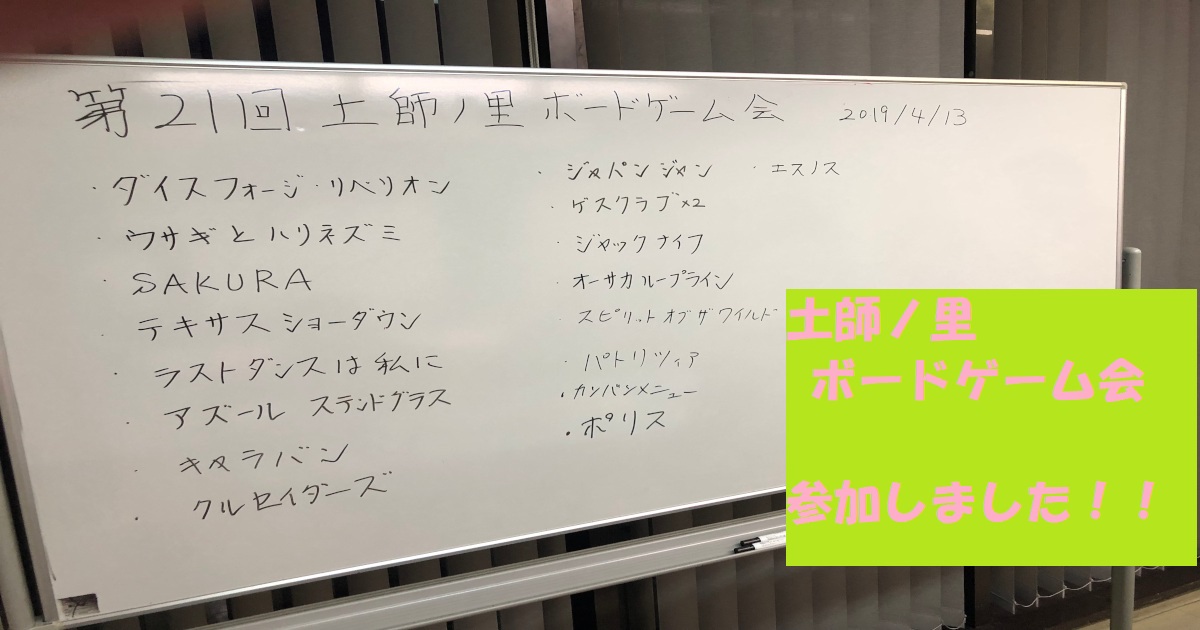 第21回 土師ノ里 ボードゲーム会 2019/4/13
・ダイスフォージ・リベリオン
・ウサギとハリネズミ
・SAKURA
・テキサスショーダウン
・ラストダンスは私に
・アズール ステンドグラス
・キャラバン
・クルセイダーズ
・ジャパンジャン
・ゲスクラブ×2
・ジャックナイフ
・オーサカループライン
・スピリットオブザワイルド
・パトリツィア
・カンバンメニュー
・ポリス
・エスノス
土師ノ里
ボードゲーム会
参加しました！！